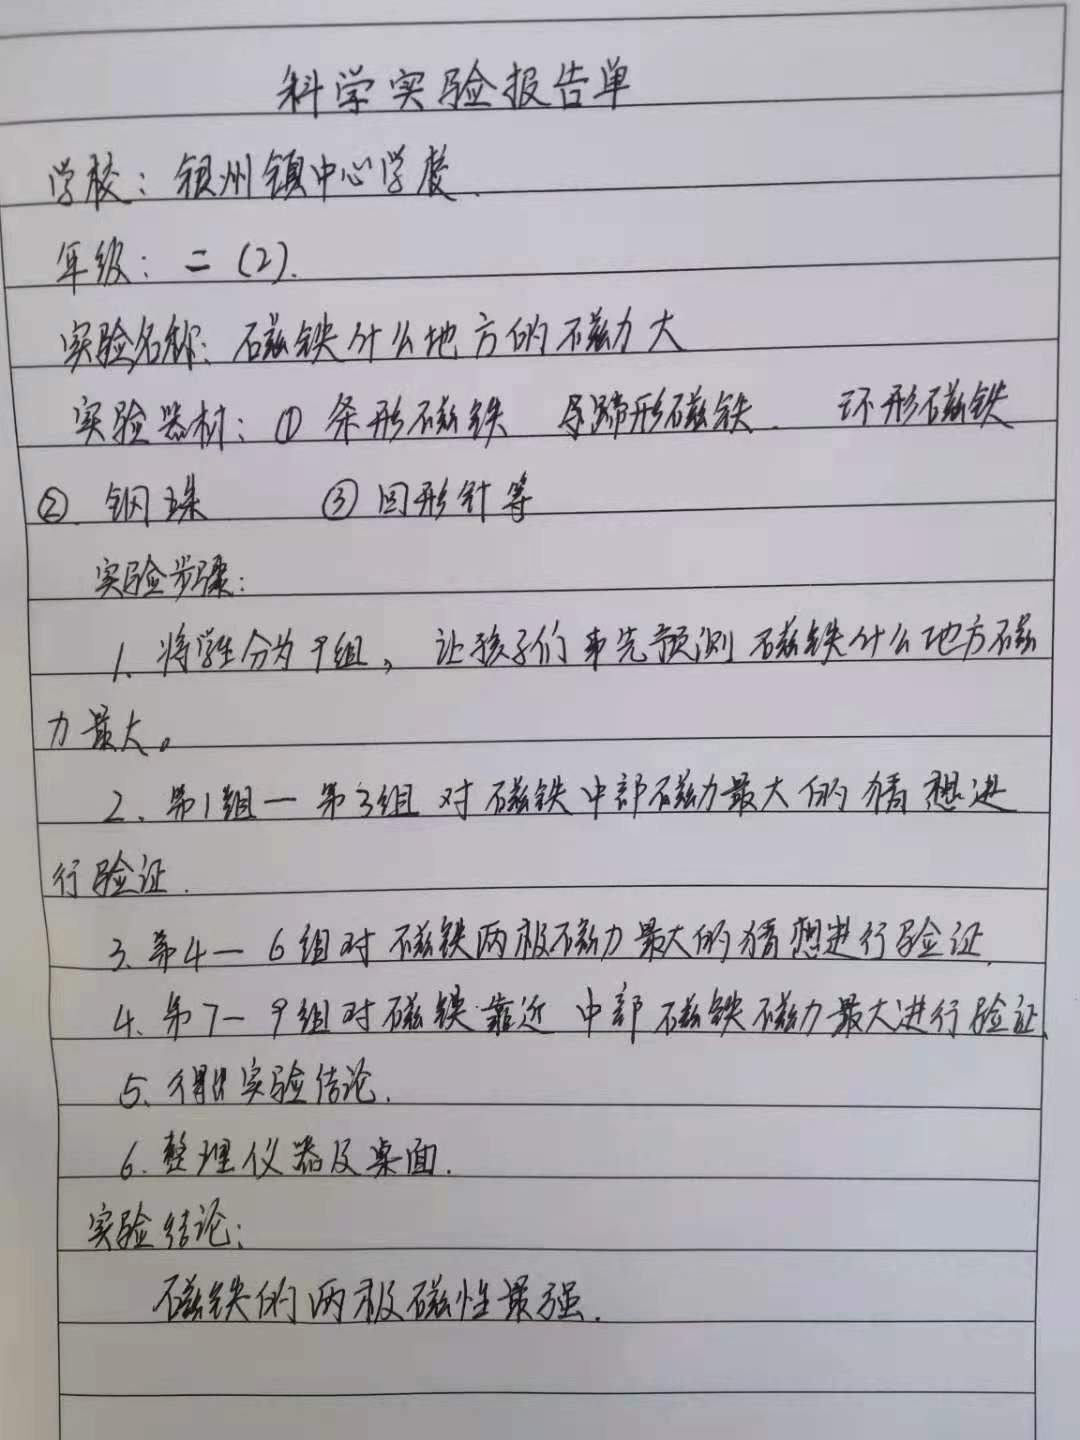 科学实验报告单
学校：银州镇中心学校.
年级：二（2）.
实验名称：磁铁什么地方的磁力大
实验器材：① 条形磁铁 马蹄形磁铁. 环形磁铁
②. 钢珠 ③ 回形针等
实验步骤：
1. 将学生分为9组，让孩子们事先预测磁铁什么地方磁
力最大。
2、第1组一第3组对磁铁中部磁力最大的猜想进
行验证.
3、第4一6组对磁铁两极磁力最大的猜想进行验证.
4、第7一9组对磁铁靠近中部磁铁磁力最大进行验证.
5、得出实验结论.
6. 整理仪器及桌面.
实验结论：
磁铁的两极磁性最强.